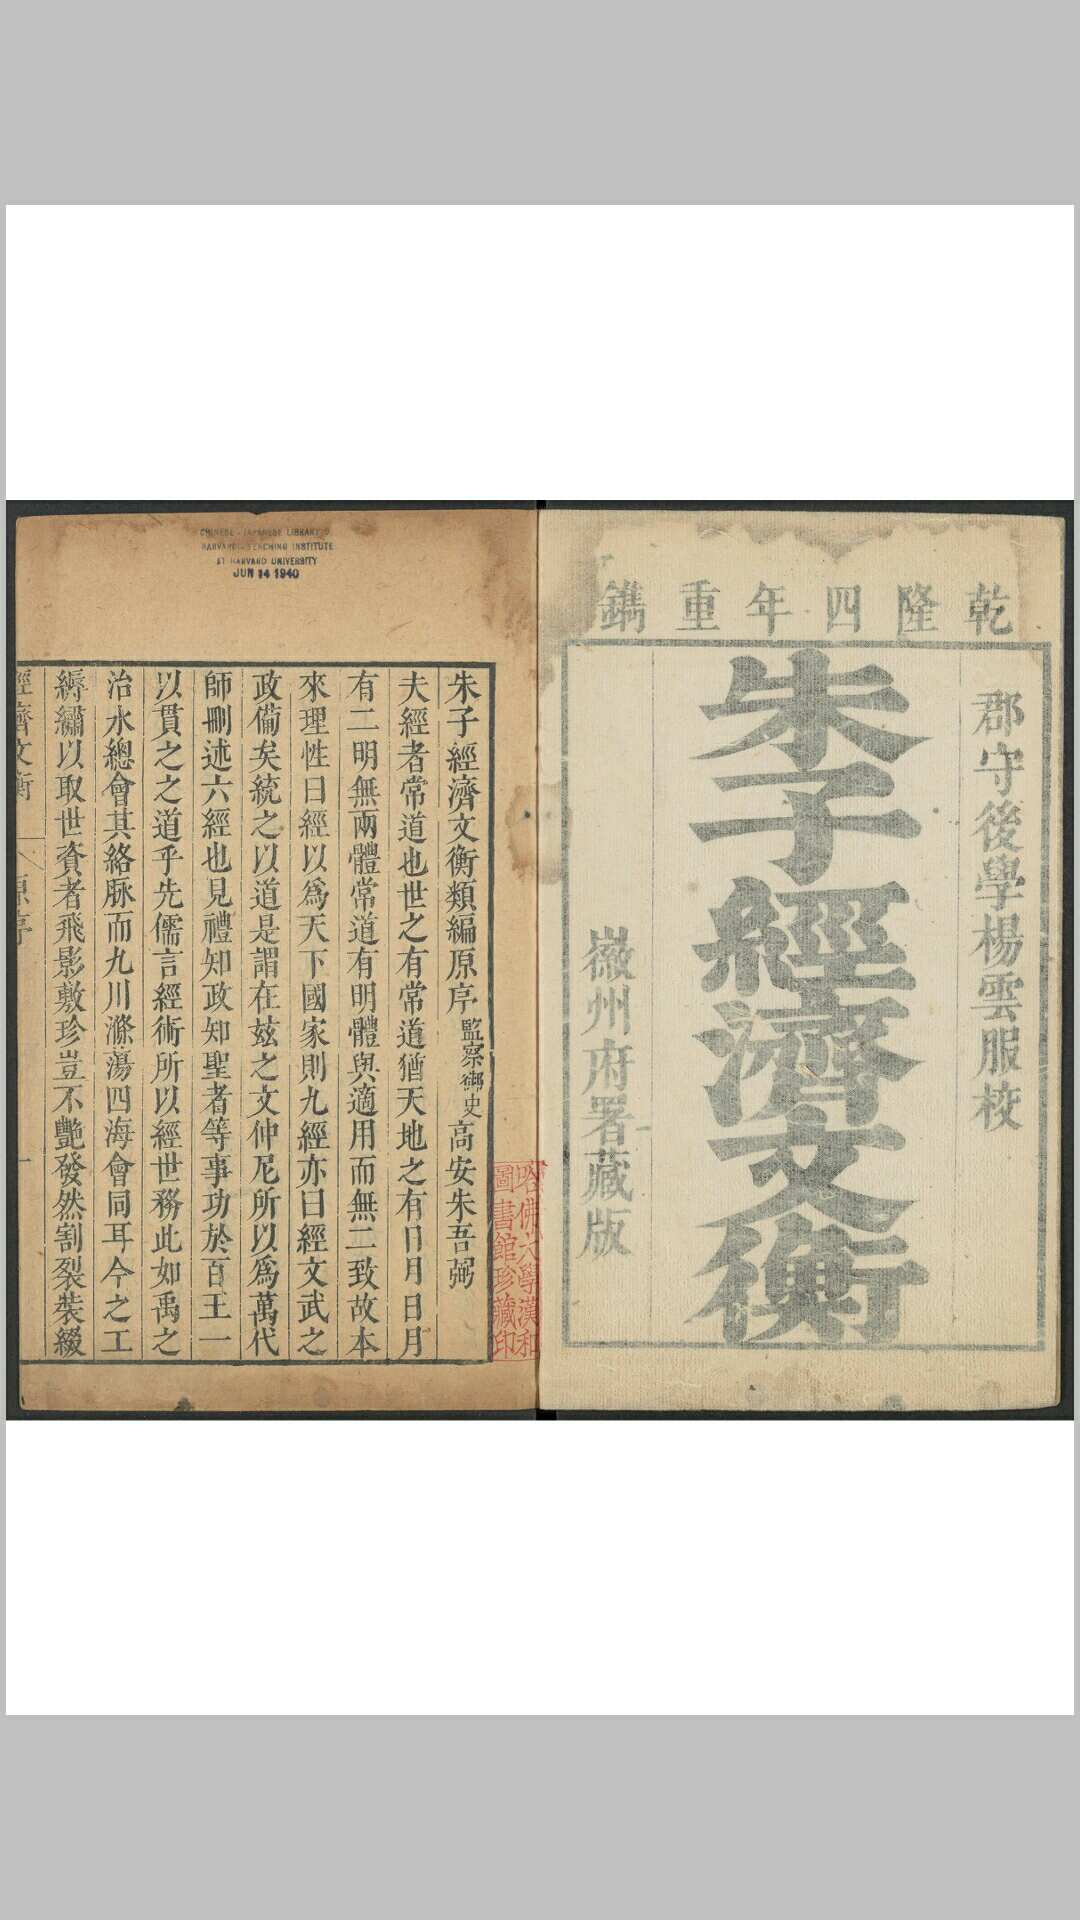 乾隆四年重鐫
郡守後學楊雲服校
朱子經濟文衡
徽州府署藏版
CHINESE-JAPANESE LIBRARY
HARVARD-YENCHING INSTITUTE
AT HARVARD UNIVERSITY
JUN 14 1940
哈佛大學漢和
圖書館珍藏印
朱子經濟文衡類編原序 監察御史高安朱吾弼
夫經者常道也世之有常道猶天地之有日月日月
有二明無兩體常道有明體與適用而無二致故本
來理性曰經以爲天下國家則九經亦曰經文武之
政備矣統之以道是謂在玆之文仲尼所以爲萬代
師刪述六經也見禮知政知聖者等事功於百王一
以貫之之道乎先儒言經術所以經世務此如禹之
治水總會其絡脉而九川滌蕩四海會同耳今之工
縟繡以取世資者飛影敷珍豈不艷發然割裂裝綴
經濟文衡 原序 一